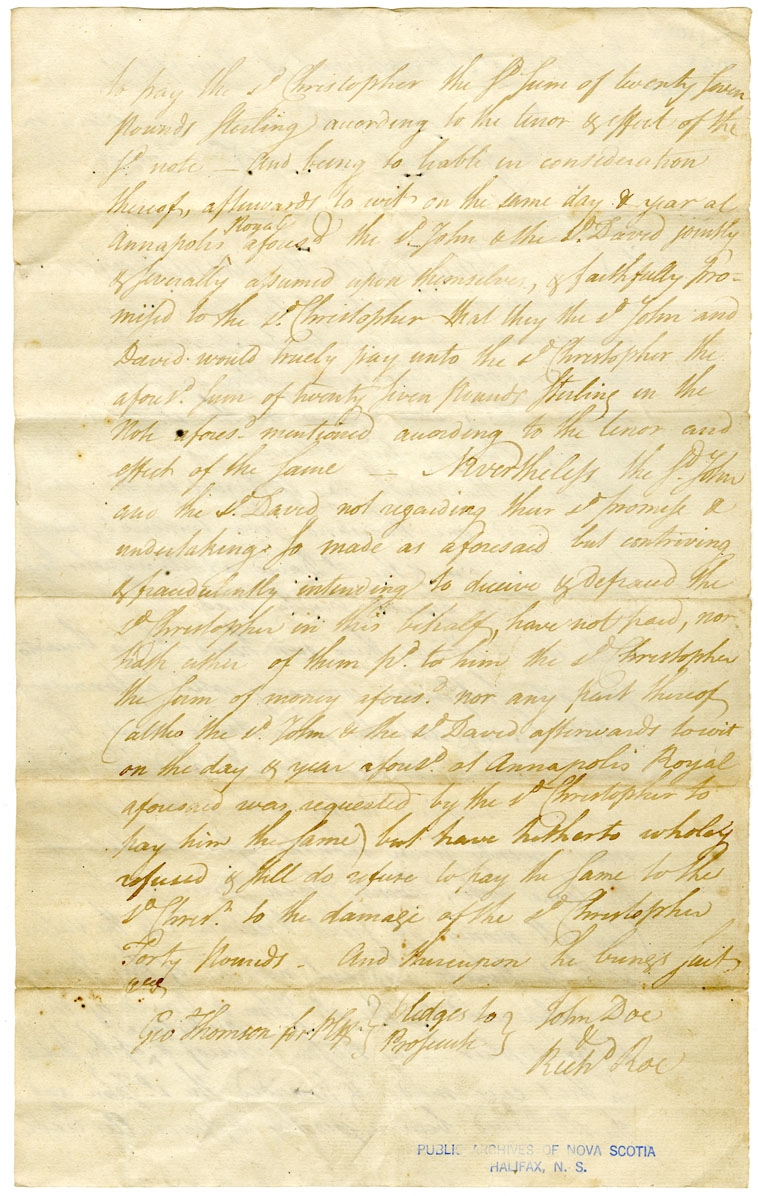 to pay the sd. Christopher the sd. sum of twenty seven
Pounds Sterling) acording to the tenor & effect of the
sd. note — and being so liable in consideration
thereof, afterwards to wit on the same day & year at
Annapolis Royal aforesd the sd. John & the sd. David jointly
& severally assumed upon themselves, & faithfully Pro-
mised to the sd. Christopher that they the sd. John and
David would truely pay unto the sd. Christopher the
aforesd. sum of twenty seven Pounds Sterling in the
Note afores.d mentioned acording to the tenor and
effect of the same — Nevertheless the sd. John
and the sd. David not regarding their sd. promise &
undertaking so made as aforesaid but contriving
& fraudulently intending to deceive & defraud the
sd. Christopher in this behalf, have not paid, nor
hath either of them pd. to him the sd. Christopher
the sum of money aforesd. nor any part thereof
(altho the sd. John & the sd. David afterwards to wit
on the day & year aforesd. at Annapolis Royal
aforesaid was requested by the sd. Christopher to
pay him the same) but have hitherto wholey
refused & still do refuse to pay the same to the
sd. Chris.r to the damage of the sd. Christopher
Forty Pounds — And thereupon he brings suit
&ca
Geo Thomson for Plff. } Pledges to Prosecute } John Doe
&
Richd. Roe
PUBLIC ARCHIVES OF NOVA SCOTIA
HALIFAX, N. S.